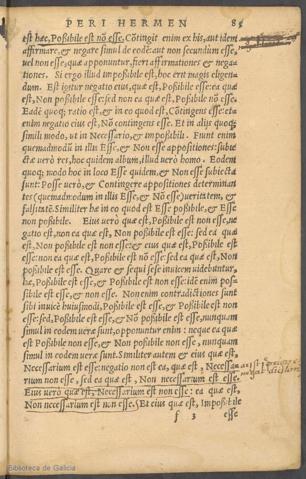 PERI HERMEN 85
est hæc, Poßibile est nõ esse. Cõtingit enim ex his, aut idem
affirmare, & negare simul de eodē: aut non secundum esse,
uel non esse, quæ apponuntur, fieri affirmationes & nega-
tiones. Si ergo illud impoßibile est, hoc erit magis eligen-
dum. Est igitur negatio eius, quæ est, Poßibile esse: ea quæ
est, Non poßibile esse: sed non ea quæ est, Poßibile nõ esse.
Eadē quoq; ratio est, & in eo quod est, Cõtingens esse: et a
enim negatio eius est, Nõ contingens esse. Et in alijs quoq;
simili modo, ut in Necessario, & impoßibili. Fiunt enim
quemadmodũ in illis Esse, & Non esse appositiones: subie
cta uerò res, hoc quidem album, illud uerò homo. Eodem
quoq; modo hoc in loco Esse quidem, & Non esse subiecta
sunt: Posse uerò, & Contingere appositiones determinan
tes (quemadmodum in illis Esse, & Nõ esse) ueritatem, &
falsitatē. Similiter hæ in eo quod est Esse poßibile, & Esse
non poßibile. Eius uerò quæ est, Poßibile est non esse, ne
gatio est, non ea quæ est, Non poßibile est esse: sed ea quæ
est, Non poßibile est non esse: & eius quæ est, Poßibile est
esse: non ea quæ est, Poßibile est nõ esse: sed ea quæ est, Non
poßibile est esse. Quare & sequi sese inuicem uidebuntur,
hæ, Poßibile est esse, & Poßibile est non esse: idē enim pos-
sibile est esse, & non esse. Non enim contradictiones sunt
sibi inuicē huiusmodi, Poßibile est esse, & Poßibile est non
esse: sed, Poßibile est esse, & Nõ poßibile est esse, nunquam
simul in eodem ueræ sunt, opponuntur enim: neque ea quæ
est Poßibile non esse, & Non poßibile non esse, nunquam
simul in eodem ueræ sunt. Similiter autem & eius quæ est,
Necessarium est esse: negatio non est ea, quæ est, Necessa
rium non esse, sed ea quæ est, Non necessarium est esse.
Eius uerò quæ est, Necessarium est non esse: ea quæ est,
Non necessarium est non esse. Et eius quæ est, Impoßibile
f 3 esse
Biblioteca de Galicia